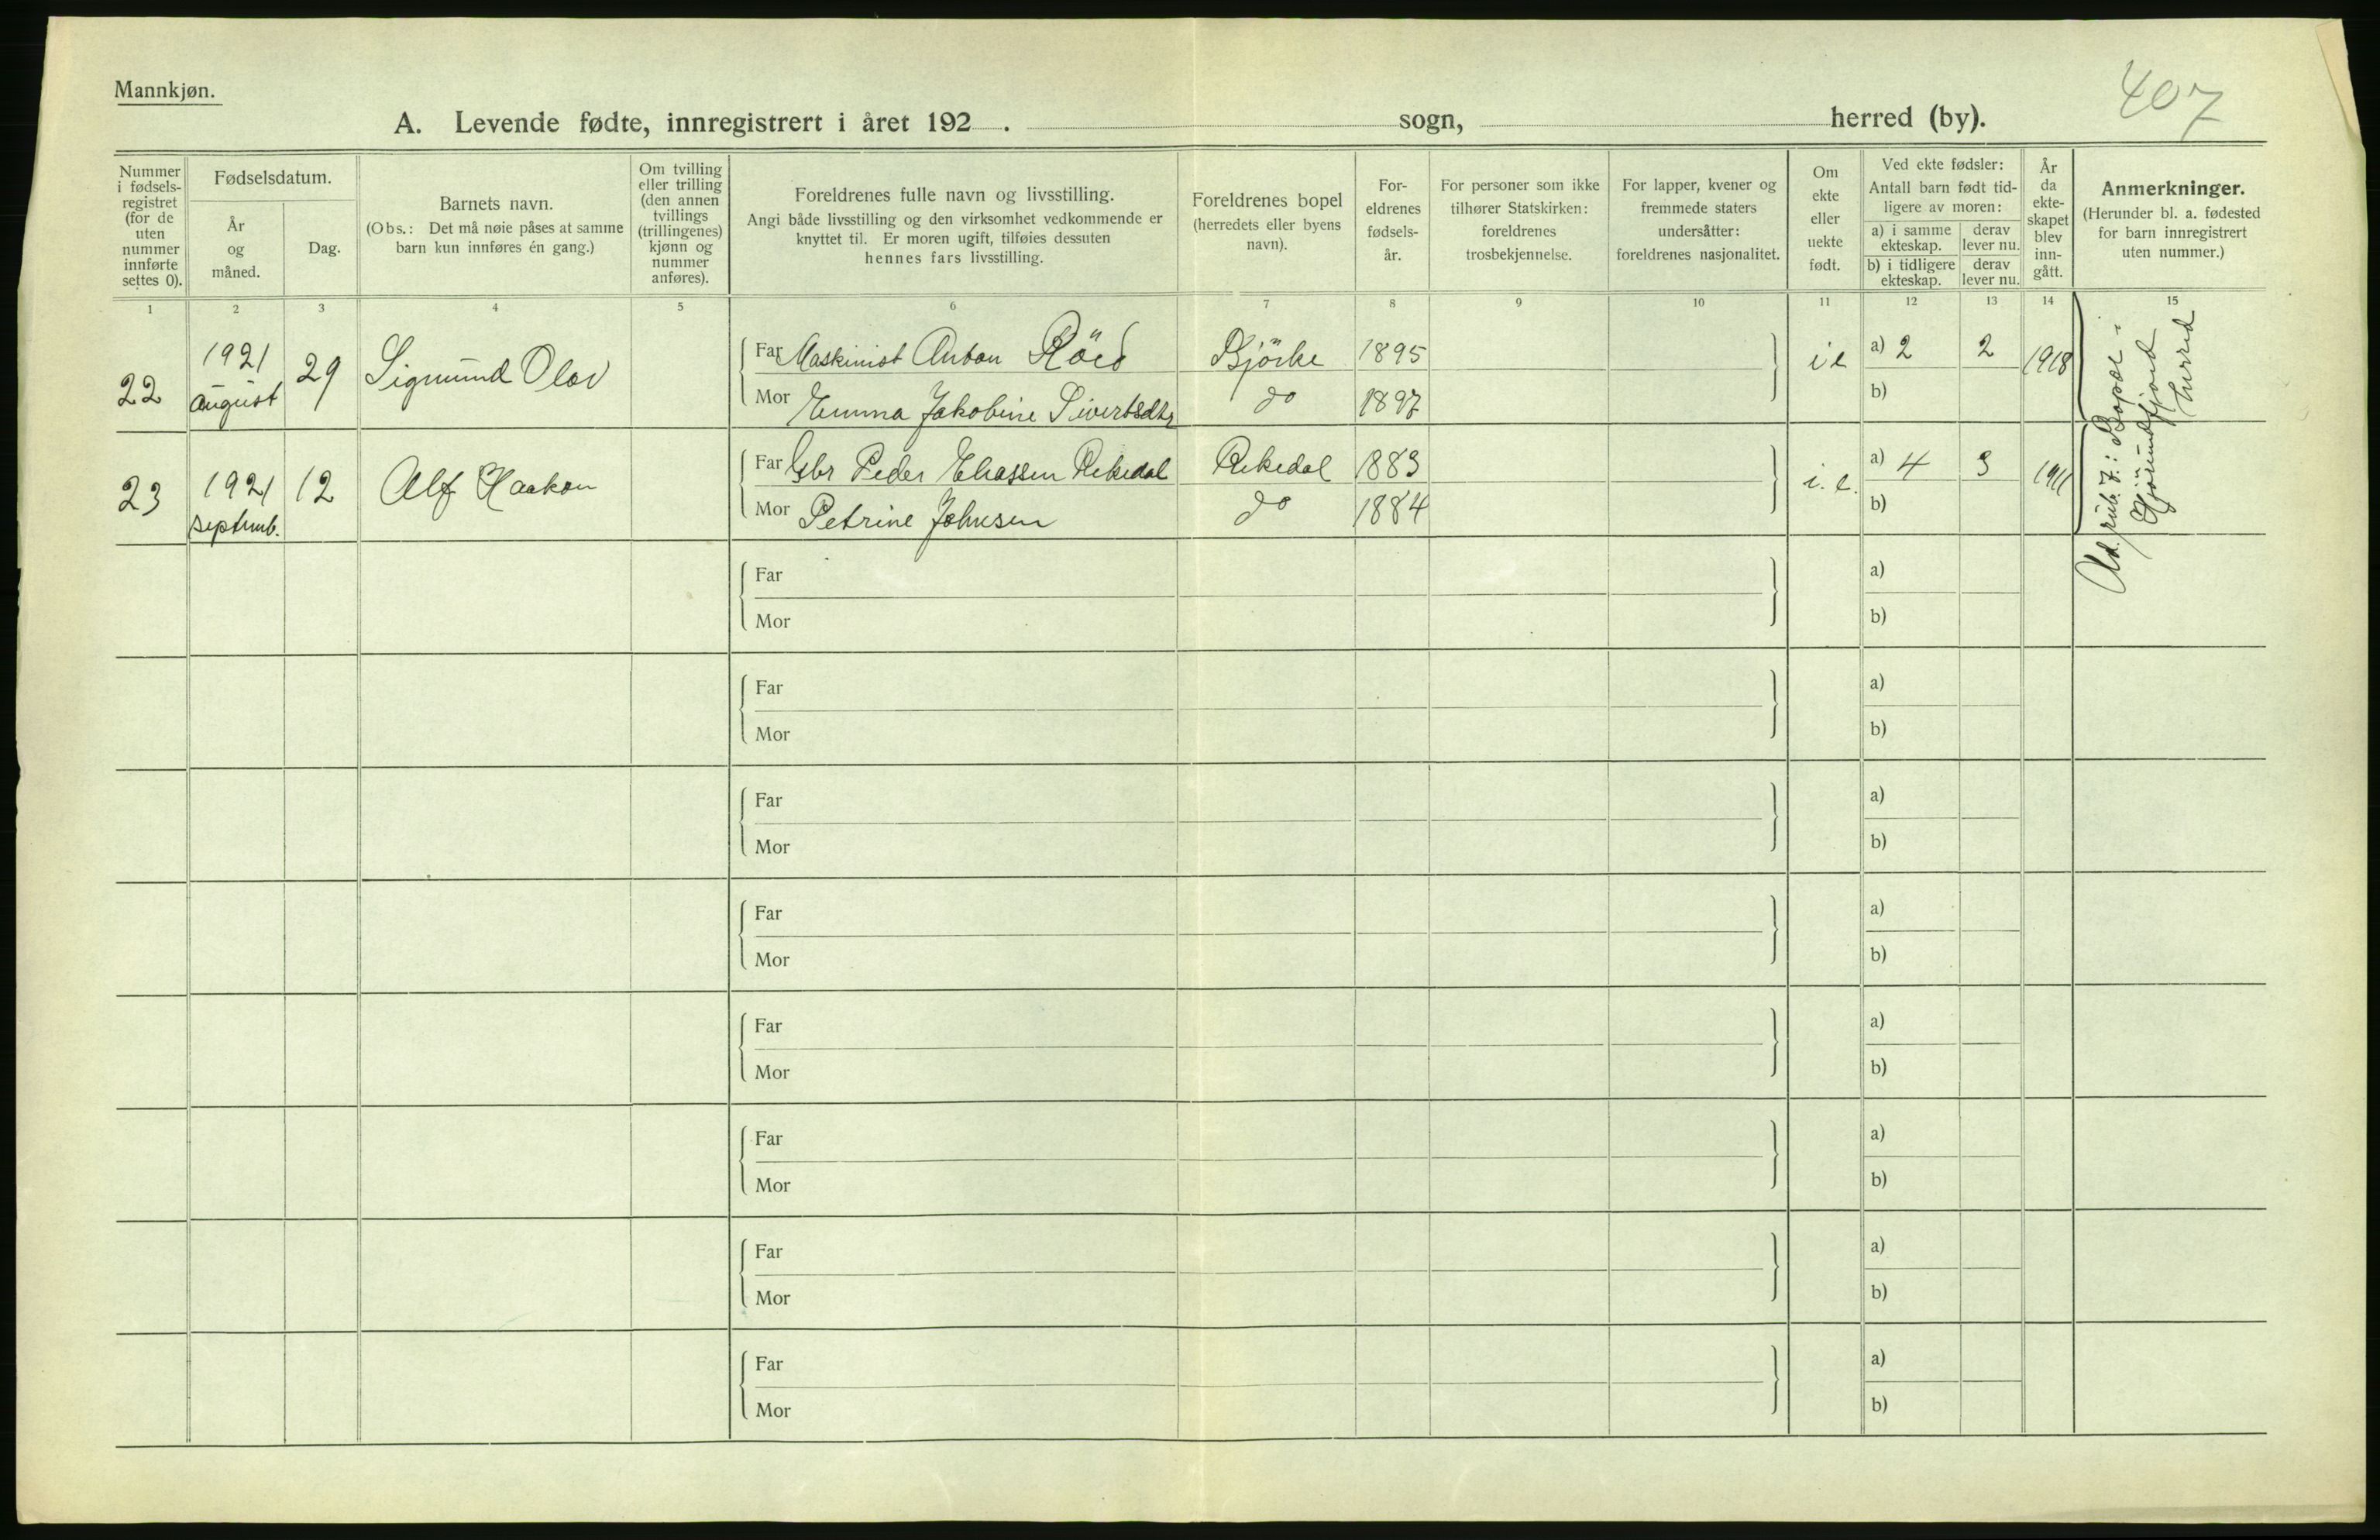 Mannkjøn.
407
A. Levende fødte, innregistrert i året 192 . sogn, herred (by).
Nummer i fødsels-registret (for de uten nummer innførte settes 0).
Fødselsdatum.
År og måned.
Dag.
Barnets navn.
(Obs.: Det må nøie påses at samme barn kun innføres én gang.)
Om tvilling eller trilling (den annen tvillings (trillingenes) kjønn og nummer anføres).
Foreldrenes fulle navn og livsstilling.
Angi både livsstilling og den virksomhet vedkommende er knyttet til. Er moren ugift, tilføies dessuten hennes fars livsstilling.
Foreldrenes bopel (herredets eller byens navn).
For-eldrenes fødsels-år.
For personer som ikke tilhører Statskirken: foreldrenes trosbekjennelse.
For lapper, kvener og fremmede staters undersåtter: foreldrenes nasjonalitet.
Om ekte eller uekte født.
Ved ekte fødsler:
Antall barn født tid-ligere av moren:
a) i samme ekteskap.
derav lever nu.
b) i tidligere ekteskap.
derav lever nu.
År da ekte-skapet blev inn-gått.
Anmerkninger.
(Herunder bl. a. fødested for barn innregistrert uten nummer.)
1 2 3 4 5 6 7 8 9 10 11 12 13 14 15
22 1921 august 29 Sigmund Olav
Far Maskinist Anton Röed Björke 1895 i e a) 2 2 1918
Mor Emma Jakobine Sivertsdtr do 1897 b)
23 1921 septemb. 12 Alf Haakon
Far Gbr Peder Eliassen Rekedal Rekedal 1883 i. e. a) 4 3 1911
Mor Petrine Johnsen do 1884 b)
Ad. rub. 7.: Bopæl i
Hjörundfjord
herred
Far a)
Mor b)
Far a)
Mor b)
Far a)
Mor b)
Far a)
Mor b)
Far a)
Mor b)
Far a)
Mor b)
Far a)
Mor b)
Far a)
Mor b)